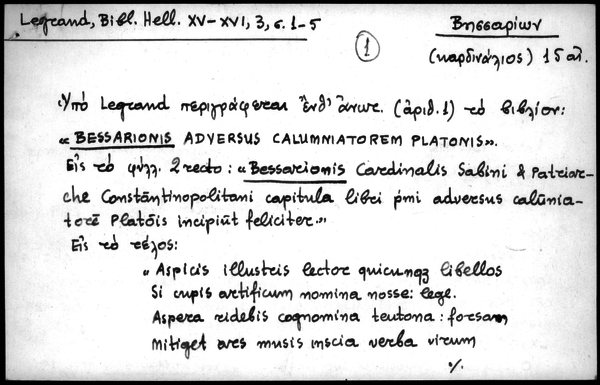 Legrand, Bibl. Hell. XV-XVI, 3, σ. 1-5
Βησσαρίων
1
(καρδινάλιος) 15 αἰ.
Ὑπό Legrand περιγράφεται ἔνθ' ἄνωτ. (ἀριθ. 1) τό βιβλίον:
«BESSARIONIS ADVERSUS CALUMNIATOREM PLATONIS».
Εἰς τό φύλλ. 2 recto: «Bessarionis Cardinalis Sabini & Patriar-
che Constãntinopolitani capitula libri ṕmi adversus calũnia-
torẽ Platõis incipiũt feliciter.»
Εἰς τό τέλος:
«Aspicis illustris lector quicunqȝ libellos
Si cupis artificum nomina nosse: lege.
Aspera ridebis cognomina teutona: forsan
Mitiget ars musis inscia verba virum
%.